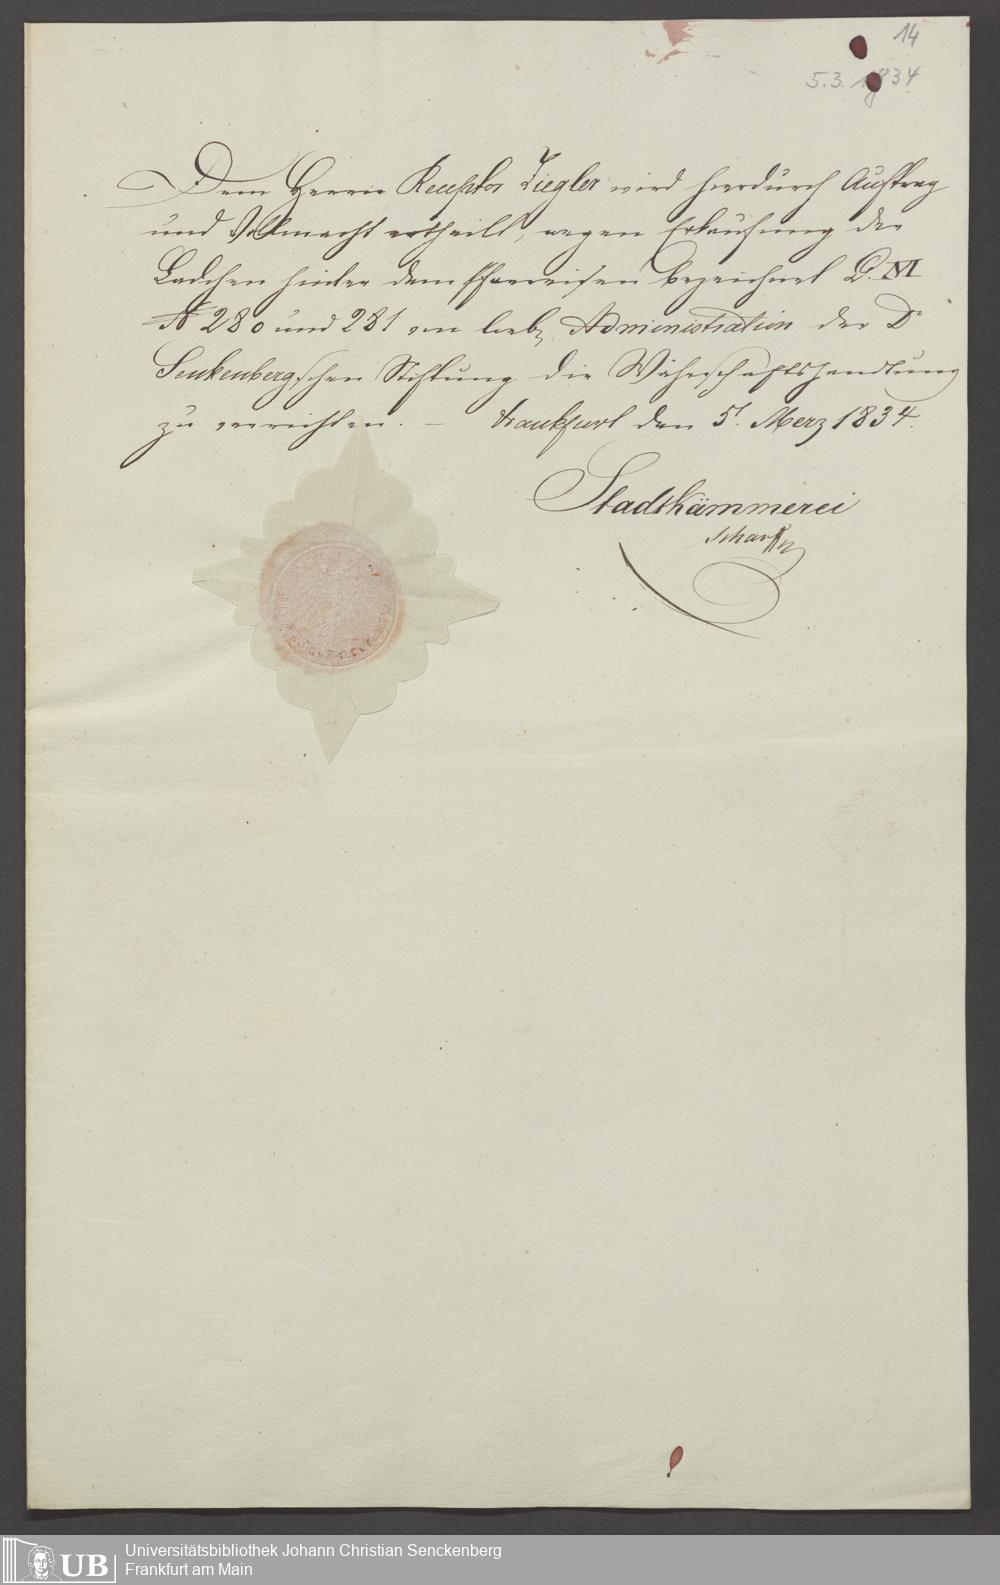 14
5.3.1834
Dem Herrn Receptor Ziegler wird hierdurch Auftrag
und Vollmacht ertheilt, wegen Erkaufung der
Lädchen hinter dem Pfarreisen bezeichnet L. M
N 280 und 281 von löbl. Administration der Dr
Senkenberg'schen Stiftung die Währschaftshandlung
zu verrichten. – Frankfurt den 5t. Merz 1834.
Stadtkämmerei
Universitätsbibliothek Johann Christian Senckenberg
Frankfurt am Main
UB